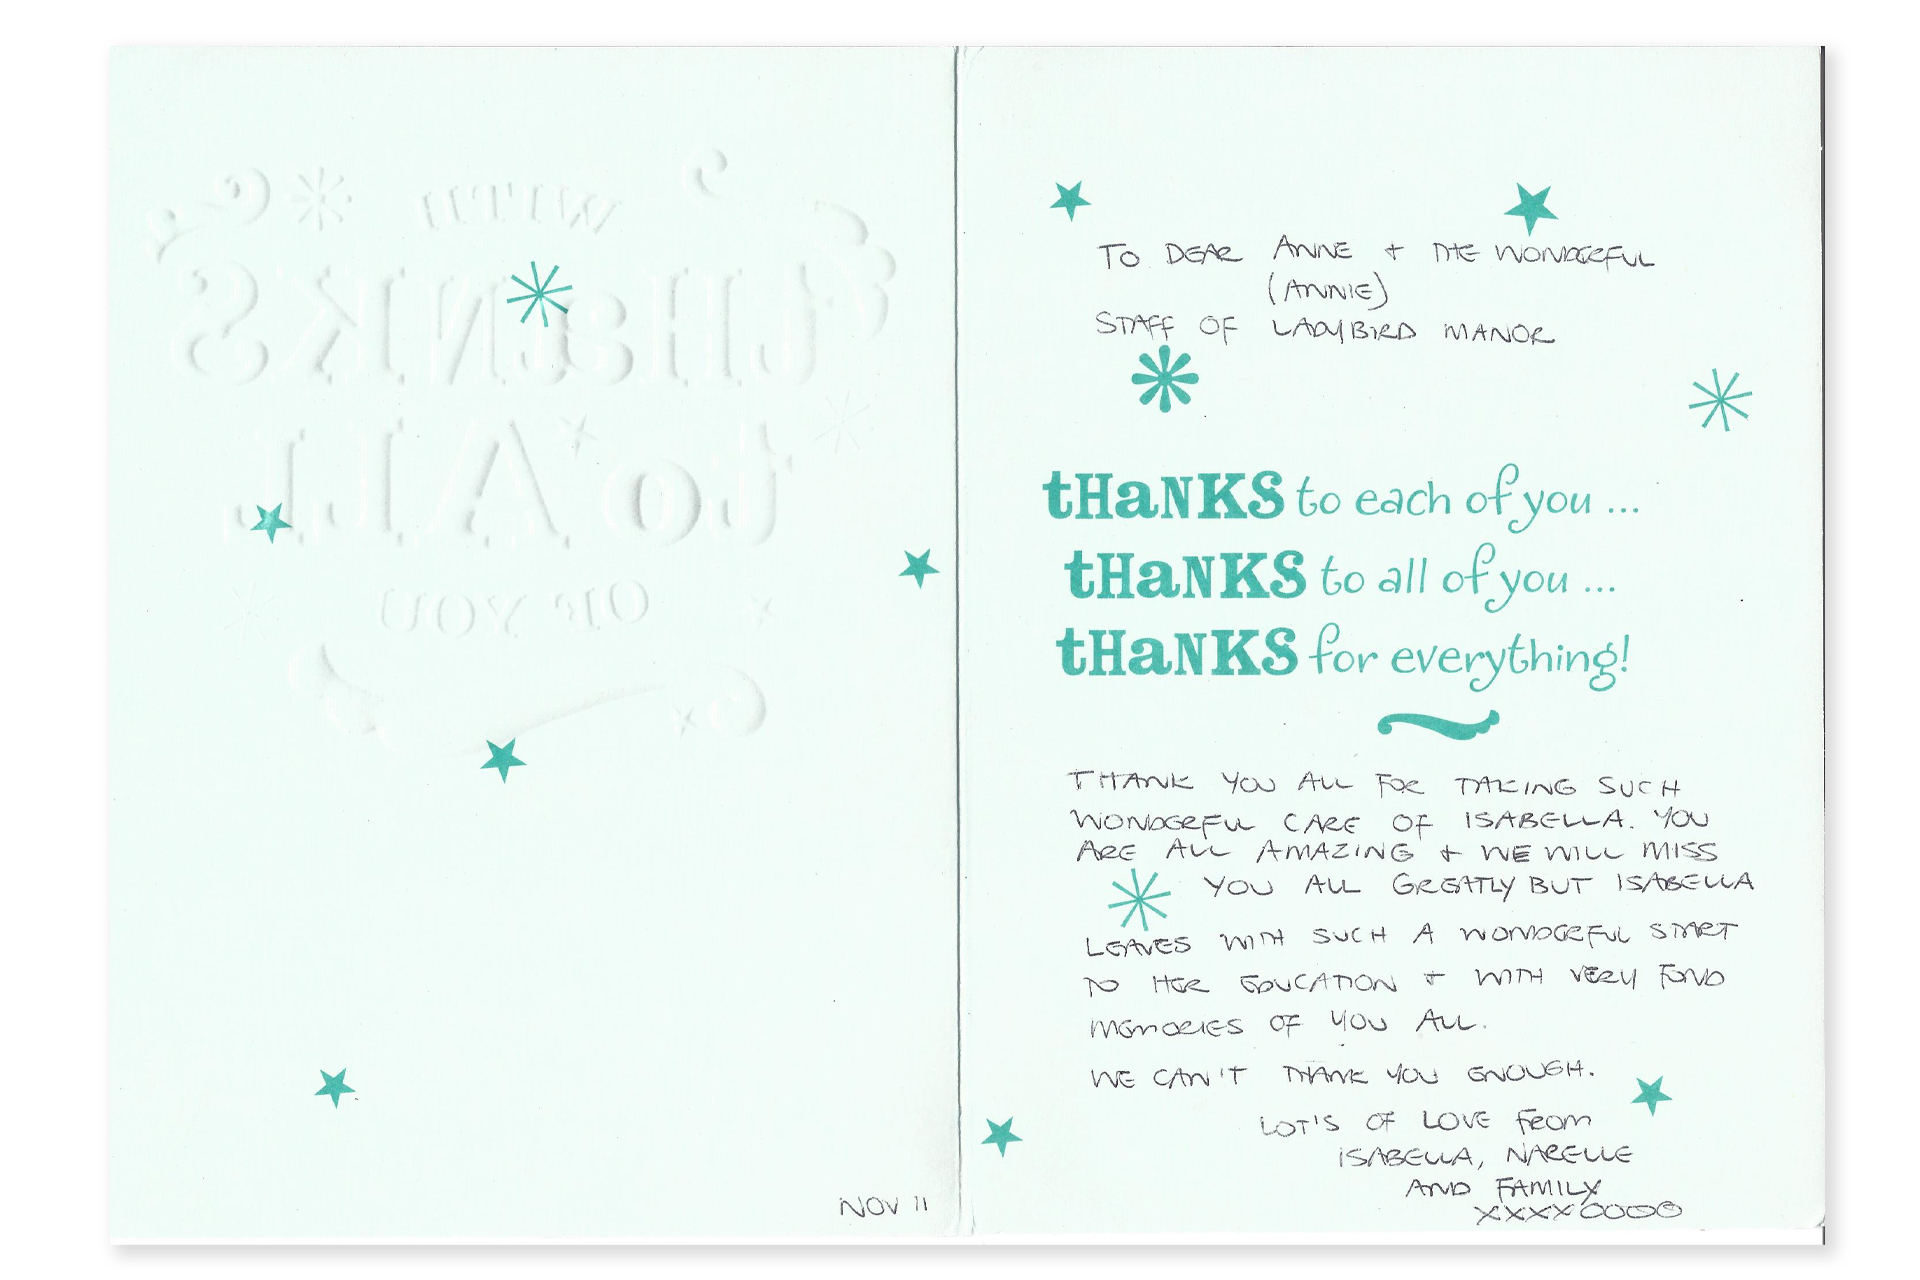 WITH
tHaNKS
to ALL
OF YOU
NOV 11
TO DEAR ANNE + THE WONDERFUL
(ANNIE)
STAFF OF LADYBIRD MANOR
tHaNKS to each of you ...
tHaNKS to all of you ...
tHaNKS for everything!
THANK YOU ALL FOR TAKING SUCH
WONDERFUL CARE OF ISABELLA. YOU
ARE ALL AMAZING + WE WILL MISS
YOU ALL GREATLY BUT ISABELLA
LEAVES WITH SUCH A WONDERFUL START
TO HER EDUCATION + WITH VERY FOND
MEMORIES OF YOU ALL.
WE CAN'T THANK YOU ENOUGH.
LOT'S OF LOVE FROM
ISABELLA, NARELLE
AND FAMILY
XXXXOOOO